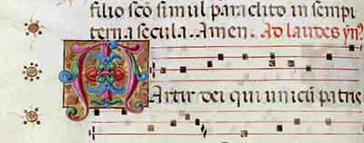 filio sc̄o simul paraclito in sempi
terna secula. Amen. Ad laudes ẏm̄
Martir dei qui unicū patris